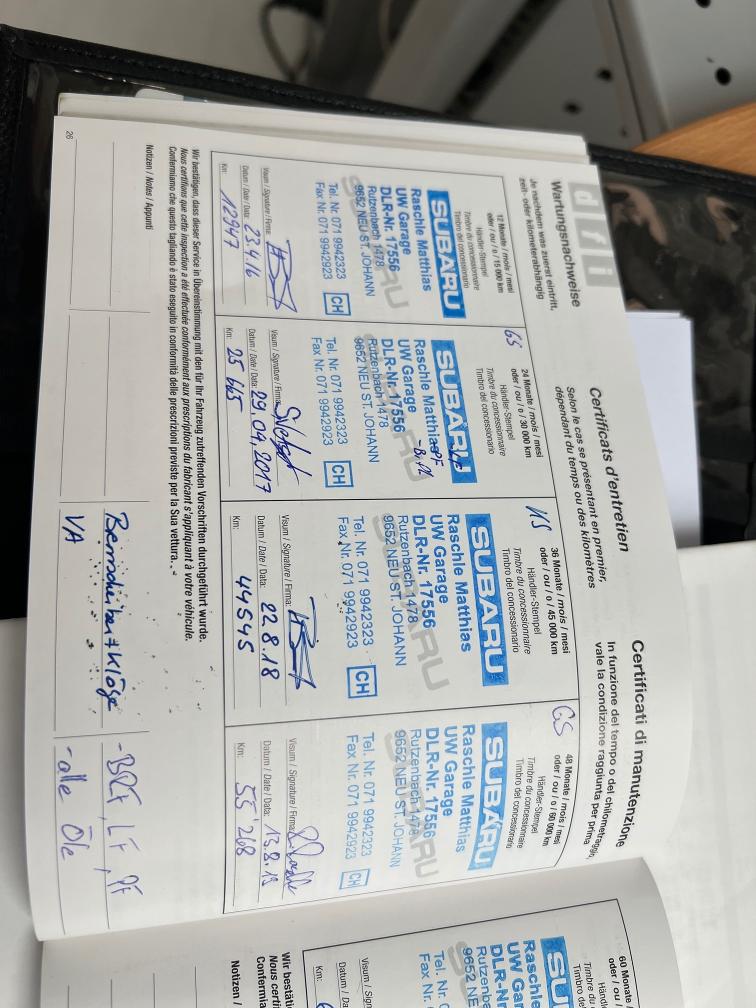 dlfi
Wartungsnachweise
Je nachdem was zuerst eintritt,
zeit- oder kilometerabhängig
Certificats d'entretien
Selon le cas se présentant en premier,
dépendant du temps ou des kilomètres
Certificati di manutenzione
In funzione del tempo o del chilometraggio,
vale la condizione raggiunta per prima
12 Monate / mois / mesi
oder / ou / o / 15 000 km
Händler-Stempel
Timbre du concessionnaire
Timbro del concessionario
SUBARU
Raschle Matthias
UW Garage
DLR-Nr. 17556
Rutzenbach 1478
9652 NEU ST. JOHANN
Tel. Nr. 071 9942323
Fax Nr. 071 9942923
CH
Visum / Signature / Firma:
Datum / Date / Data: 23.4.16
Km: 12947
GS
24 Monate / mois / mesi
oder / ou / o / 30 000 km
Händler-Stempel
Timbre du concessionnaire
Timbro del concessionario
SUBARU
Raschle Matthias
UW Garage
DLR-Nr. 17556
Rutzenbach 1478
9652 NEU ST. JOHANN
Tel. Nr. 071 9942323
Fax Nr. 071 9942923
CH
Visum / Signature / Firma:
Datum / Date / Data: 29.04.2017
Km: 25 665
VS
36 Monate / mois / mesi
oder / ou / o / 45 000 km
Händler-Stempel
Timbre du concessionnaire
Timbro del concessionario
SUBARU
Raschle Matthias
UW Garage
DLR-Nr. 17556
Rutzenbach 1478
9652 NEU ST. JOHANN
Tel. Nr. 071 9942323
Fax Nr. 071 9942923
CH
Visum / Signature / Firma:
Datum / Date / Data: 22.8.18
Km: 44545
GS
48 Monate / mois / mesi
oder / ou / o / 60 000 km
Händler-Stempel
Timbre du concessionnaire
Timbro del concessionario
SUBARU
Raschle Matthias
UW Garage
DLR-Nr. 17556
Rutzenbach 1478
9652 NEU ST. JOHANN
Tel. Nr. 071 9942323
Fax Nr. 071 9942923
CH
Visum / Signature / Firma:
Datum / Date / Data: 13.8.19
Km: 55'268
Wir bestätigen, dass dieser Service in Übereinstimmung mit den für Ihr Fahrzeug zutreffenden Vorschriften durchgeführt wurde.
Nous certifions que cette inspection a été effectuée conformément aux prescriptions du fabricant s'appliquant à votre véhicule.
Confermiamo che questo tagliando è stato eseguito in conformità delle prescrizioni previste per la Sua vettura.
Notizen / Notes / Appunti
Bremscheiben + Klötze
VA
- BRF, LF, PF
- alle Öle
26
60 Monate
oder / ou
Timbre du
SUBARU
UW Gar
DLR-Nr
9652 NE
Tel. Nr.
Fax Nr.
Km:
Wir bestäti
Nous certi
Notizen /